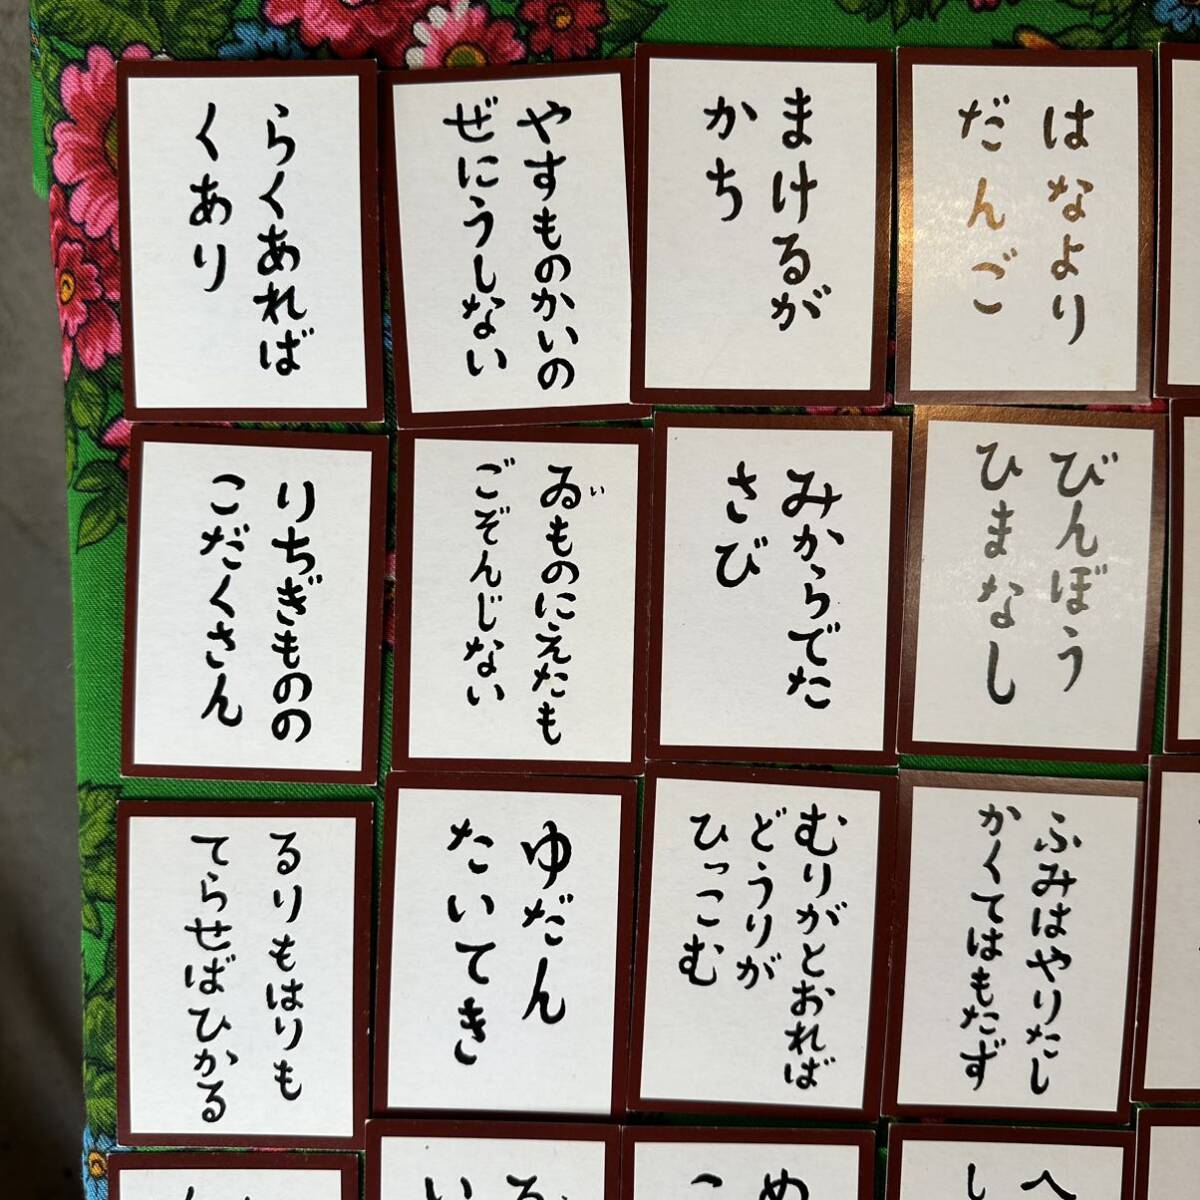 はなより
だんご
まけるが
かち
やすものかいの
ぜにうしない
らくあれば
くあり
びんぼう
ひまなし
みからでた
さび
ゐものにえたも
い
ごぞんじない
りちぎものの
こだくさん
ふみはやりたし
かくてはもたず
むりがとおれば
どうりが
ひっこむ
ゆだん
たいてき
るりもはりも
てらせばひかる